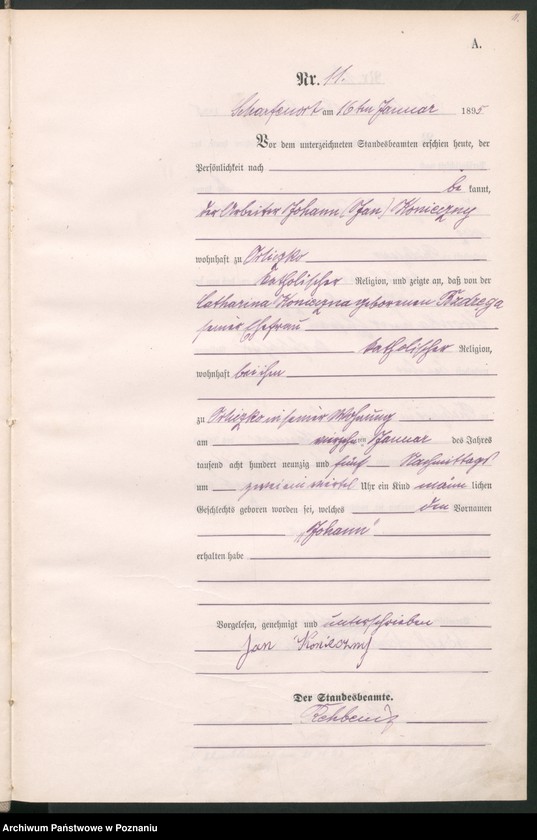 A.
Nr. 11.
Scharfenort am 16ten Januar 1895
Vor dem unterzeichneten Standesbeamten erschien heute, der
Persönlichkeit nach
be kannt,
der Arbeiter Johann (Jan) Konieczny
wohnhaft zu
katholischer Religion, und zeigte an, daß von der
Catharina Konieczna geborenen
seiner Ehefrau
katholischer Religion,
wohnhaft bei ihm
zu in seiner Wohnung
am ten Januar des Jahres
tausend acht hundert neunzig und fünf Nachmittags
um zwei ein viertel Uhr ein Kind männ lichen
Geschlechts geboren worden sei, welches den Vornamen
„Johann"
erhalten habe
Vorgelesen, genehmigt und unterschrieben
Jan Konieczny
Der Standesbeamte.
Archiwum Państwowe w Poznaniu